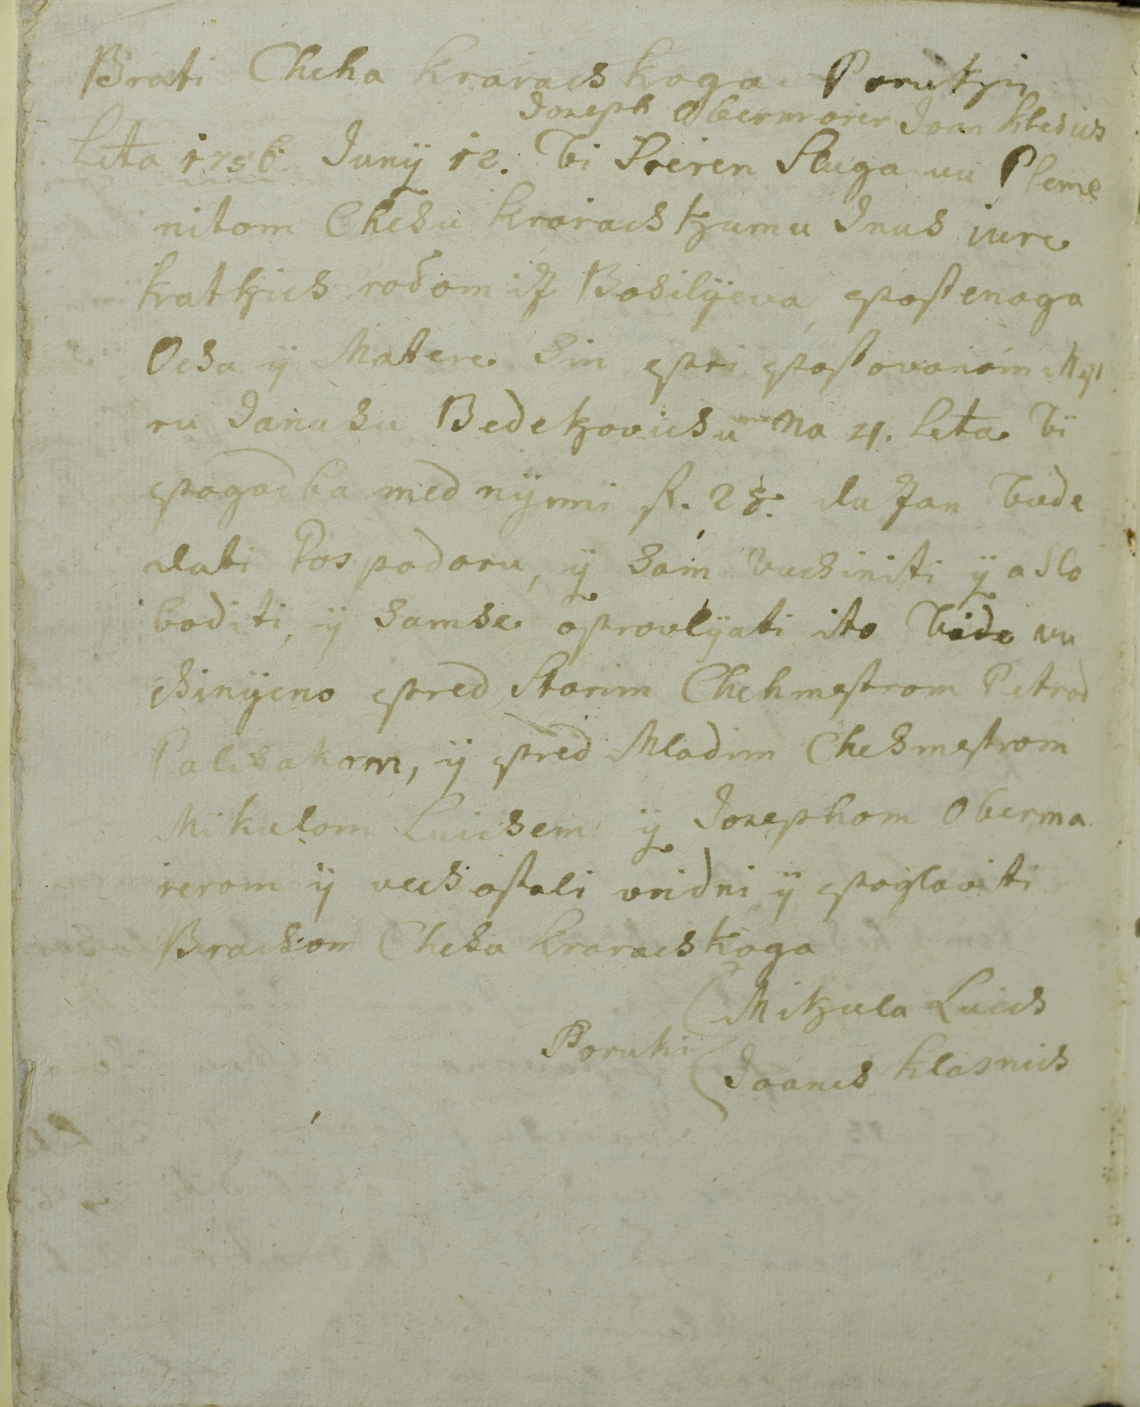 Brati Cheha kraracskoga Porukzi
Joseph Obermarer Joan Klesics
Leta 1756 Junÿ 12. bi Preien Sluga vu Pleme
nitom Chehu kraracskzumu Inus iure
katkzics rodom iz Bosilÿeva, postenoga
Ocza ÿ Matere Sin pri postovanom Mest
ru Janusu Bedekzovicsu Na 4. leta bï
pogodba med nÿimi fl. 28. da Jan bude
dati Pospodaru, ÿ sam vucsiniti ÿ oslo
boditi, ÿ samse opravlÿati ito bide vu
csinÿeno pred Starim Chehmestrom Petrom
Palisakom, ÿ pred Mladim Chehmestrom
Mikulom Luicsem ÿ Josephom Oberma
rerom ÿ vecs ostali vridni ÿ poglaviti
Bracsom Cheha kraracskoga
Mikzula Luics
Poruki
Joanes Klasnics